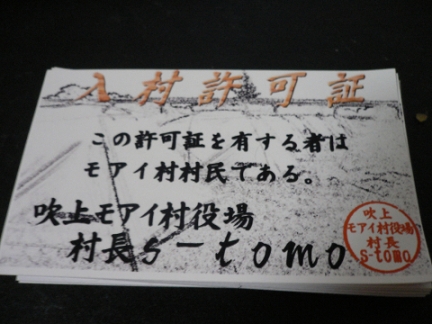 入村許可証
この許可証を有する者は
モアイ村村民である。
吹上モアイ村役場
村長s-tomo
吹上
モアイ村役場
村長
s-tomo